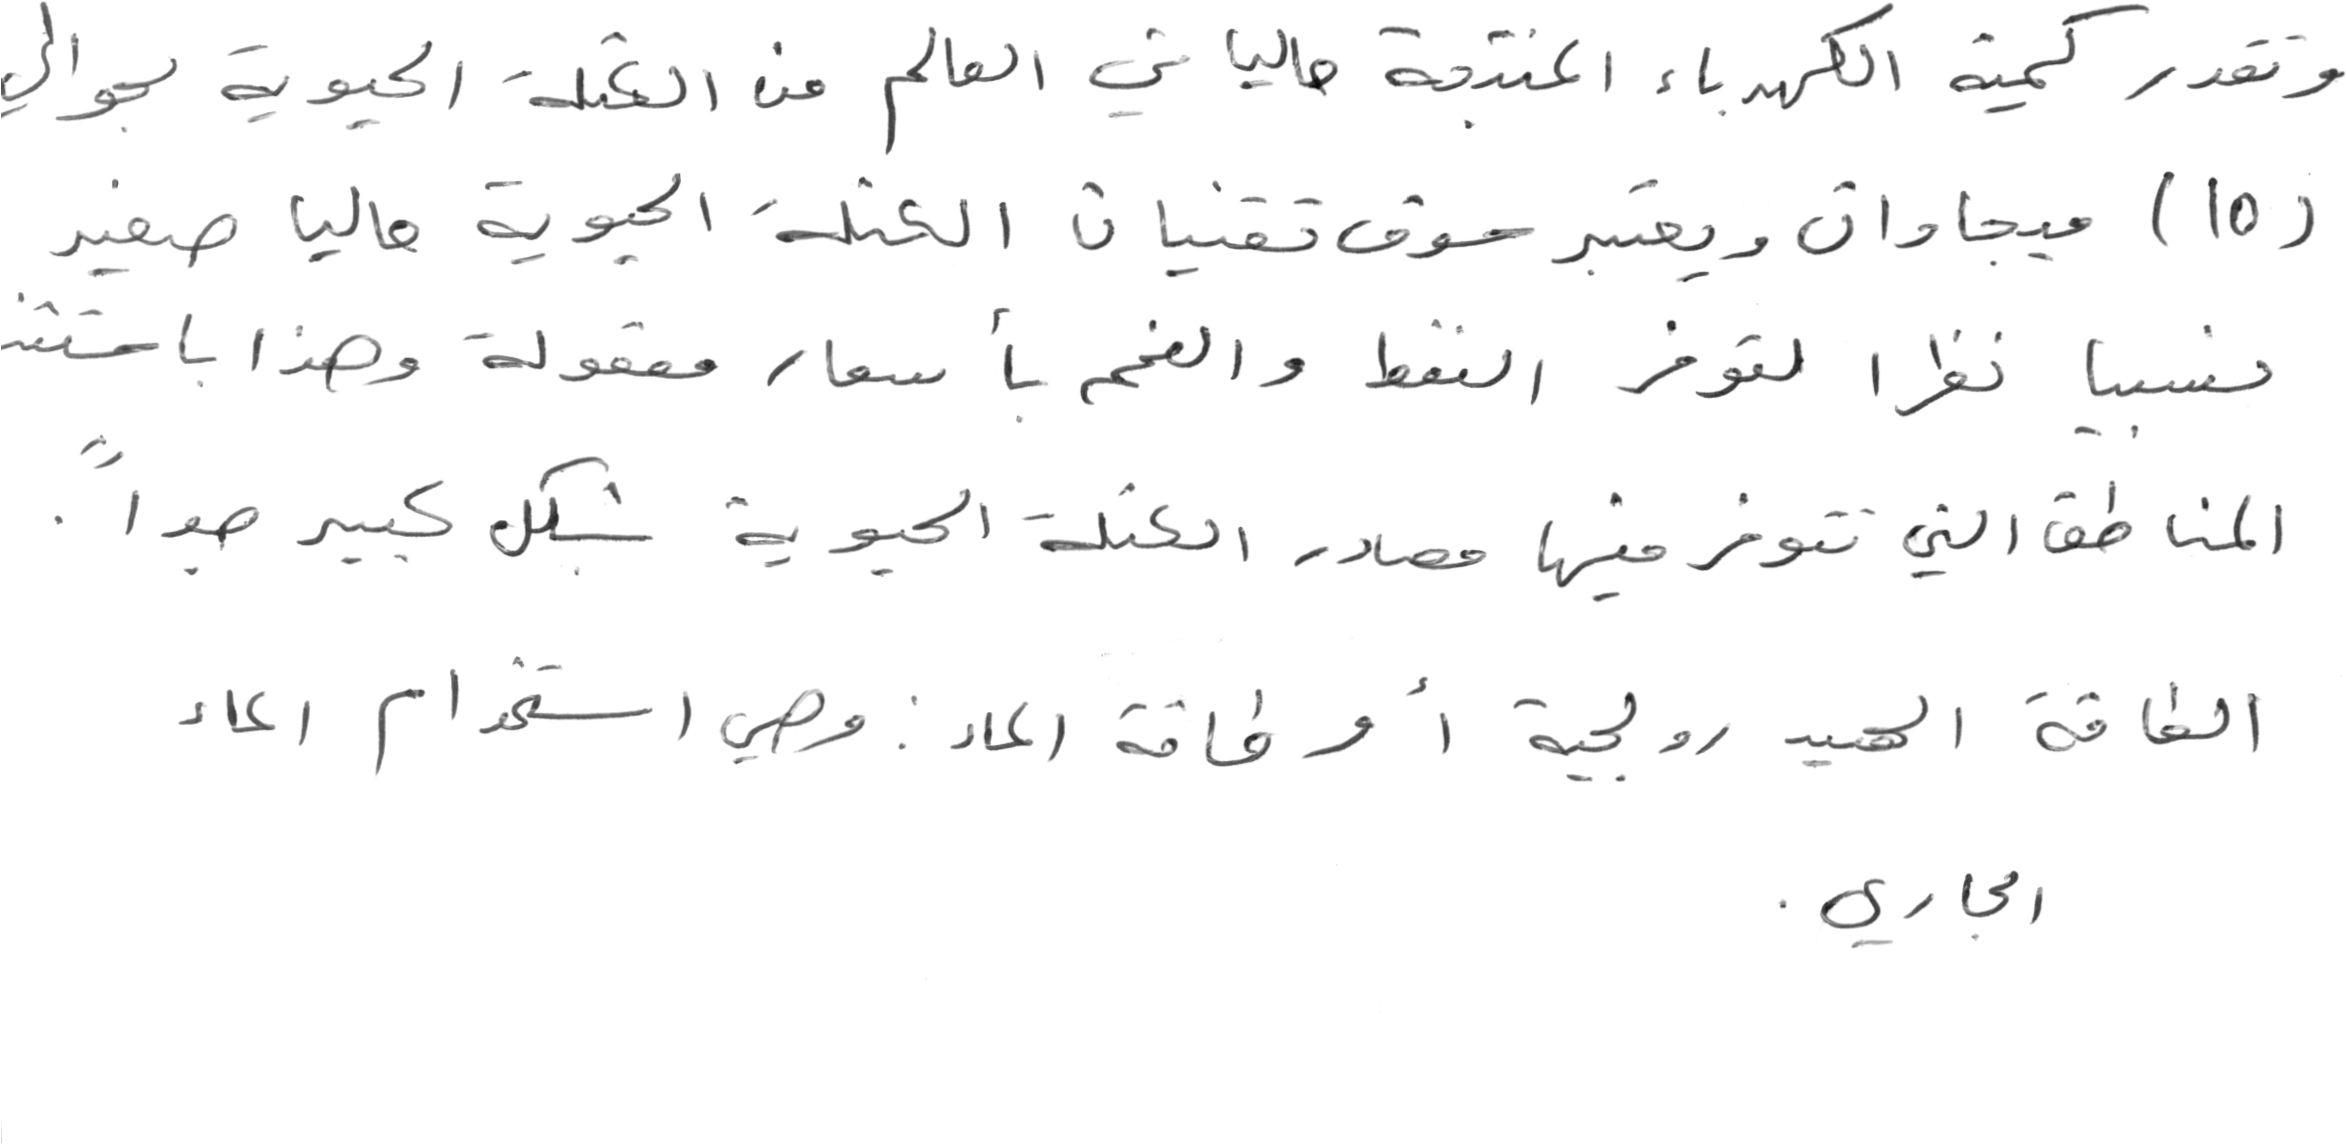 وتقدر كمية الكهرباء المنتجة حاليا في العالم من الكتلة الحيوية بحوالي
(١٥) ميجاوات ويعتبر سوق تقنيات الكتلة الحيوية حاليا صغير
نسبيا نظرا لتوفر النفط والفحم بأسعار معقولة وهذا باستثن
المناطق التي تتوفر فيها مصادر الكتلة الحيوية بشكل كبير جداً.
الطاقة الهيدرولجية أو طاقة الماء: وهي استخدام الماء
الجاري.